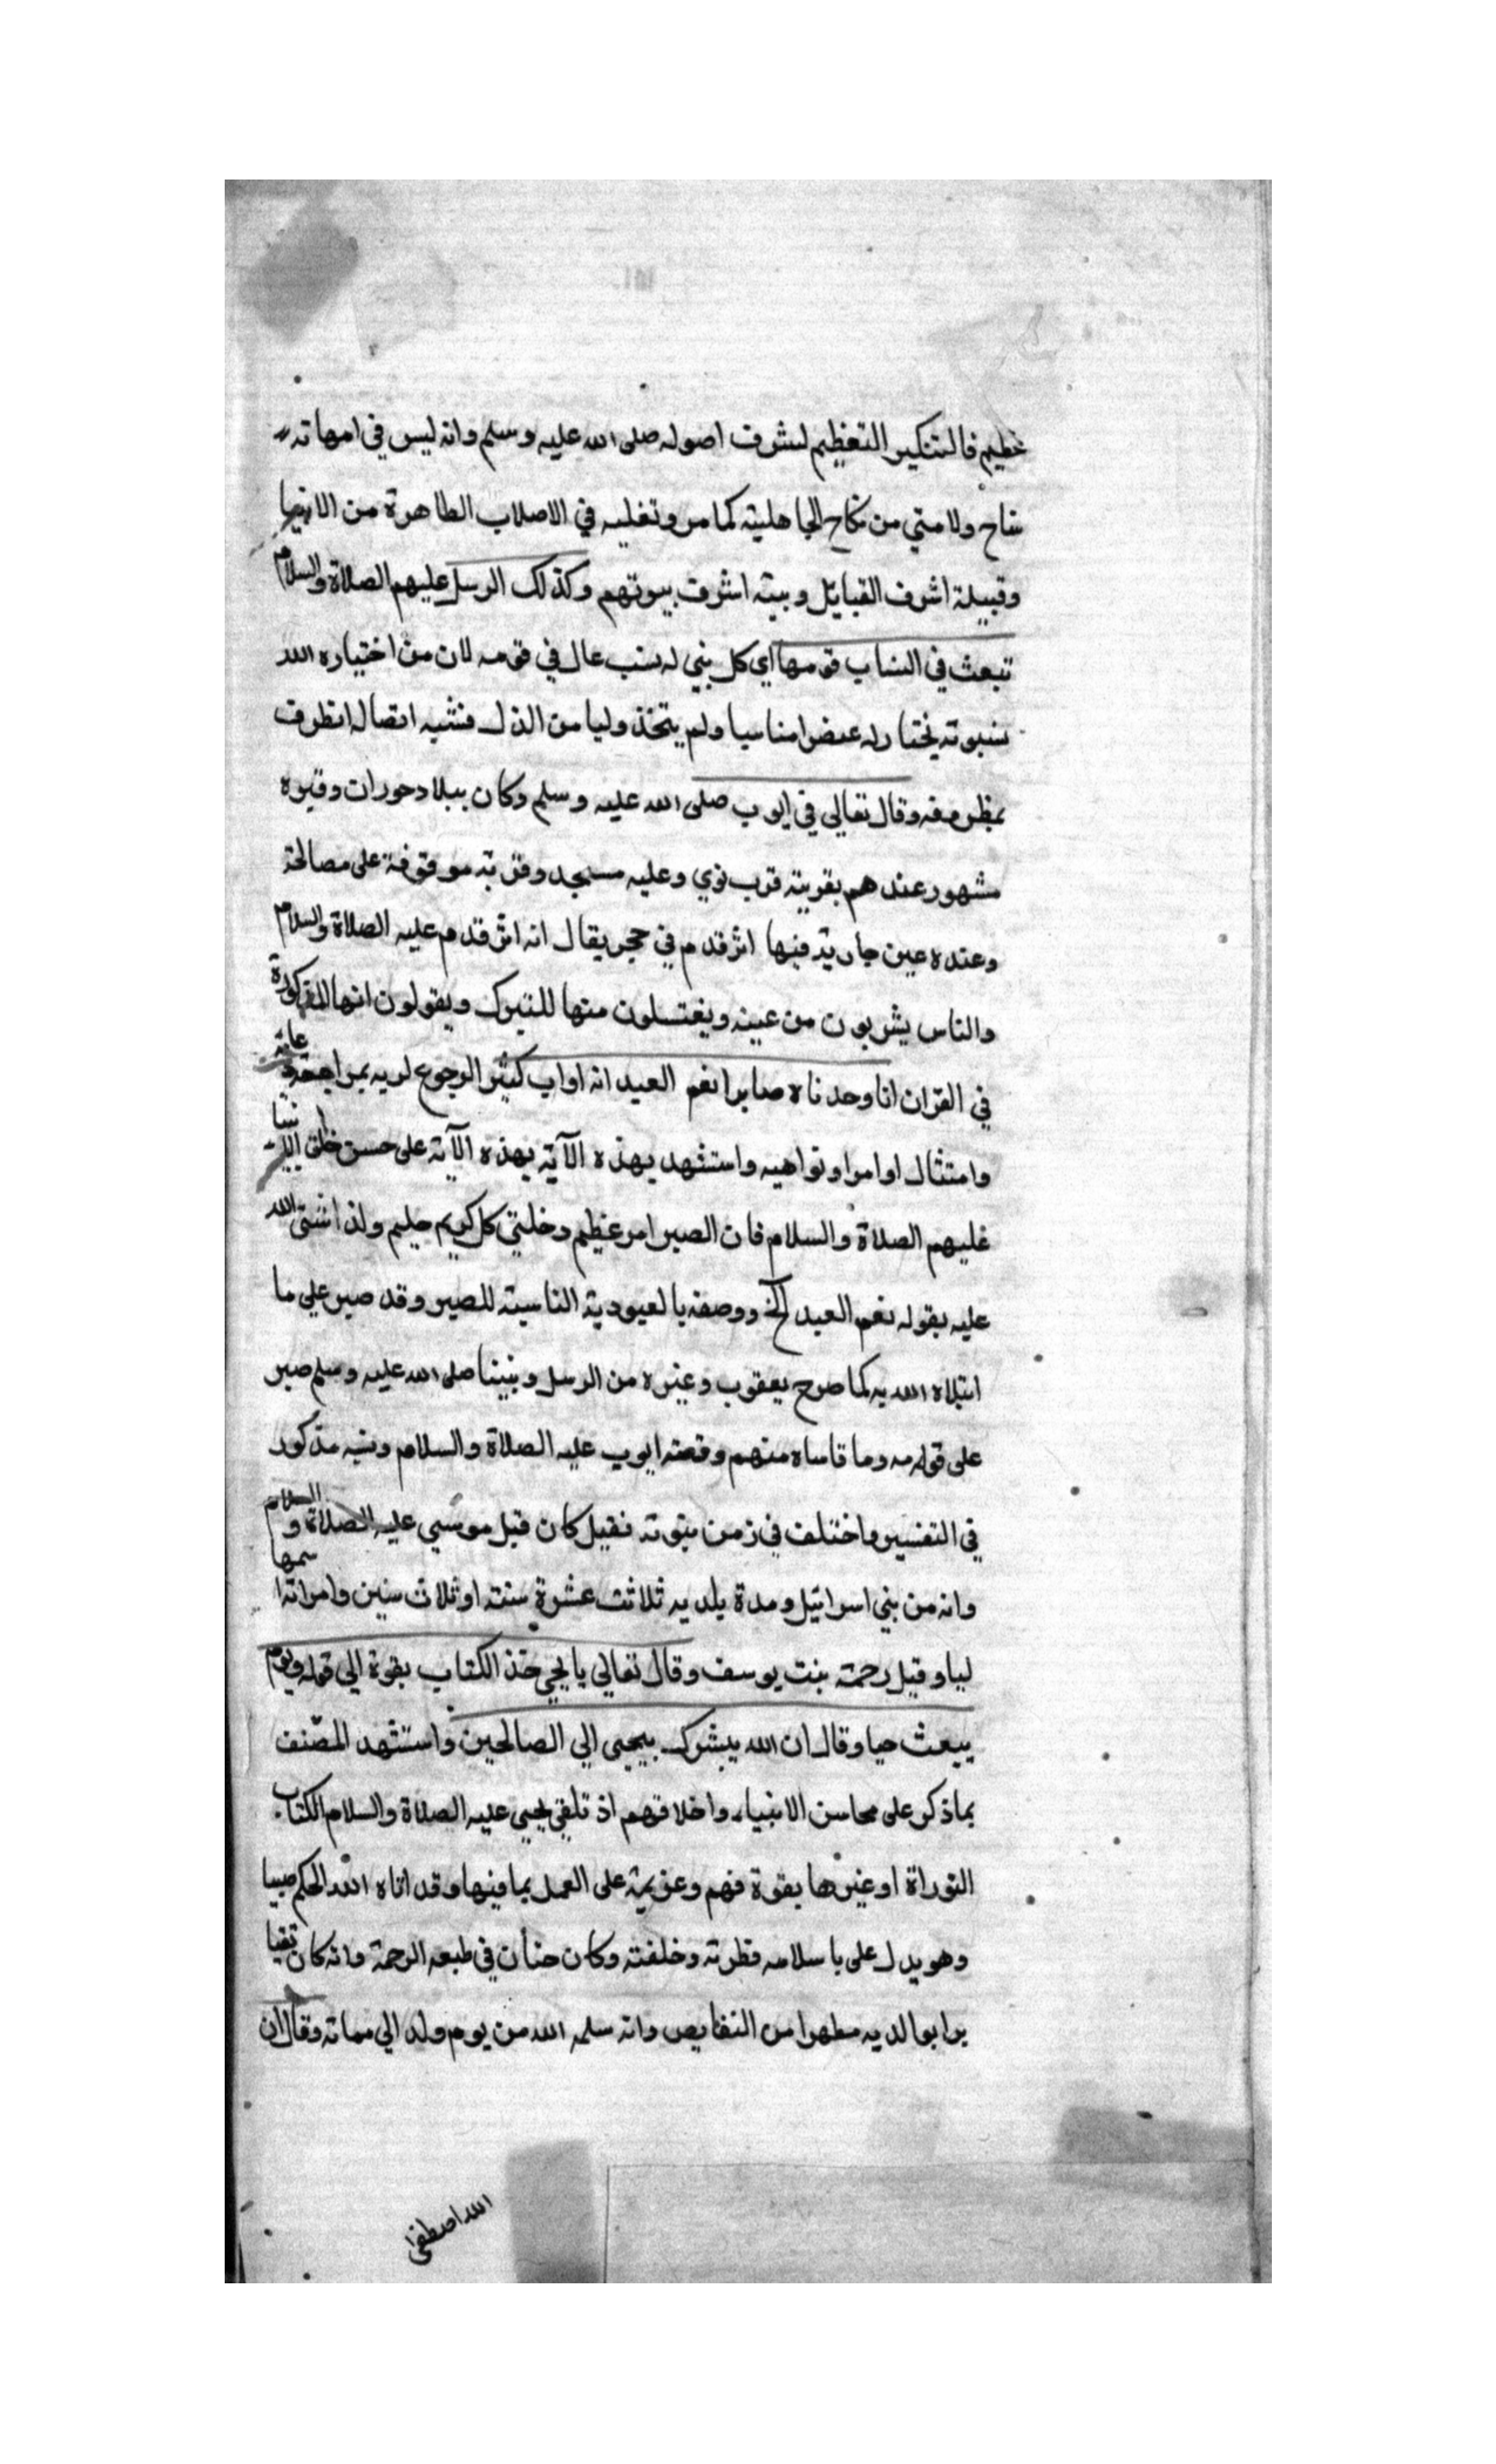 عظيم فالتنكير للتعظيم لشرف اصوله صلى الله عليه وسلم وانه ليس في امهاته
سفاح ولا متي من نكاح الجاهلية كما مر وتغليبه في الاصلاب الطاهرة من الانبيا
وقبيلة اشرف القبايل وبيته اشرف بيوتهم وكذلك الرسل عليهم الصلاة والسلام
تبعث في انساب قومها اي كل نبي له نسب عال في قومه لان من اختياره الله
لنبوته يختار له عنصرا مناسبا ولم يتخذ وليا من الذل فنشبه اتصاله انظرف
بمظروفه وقال تعالي في ايوب صلى الله عليه وسلم وكان ببلاد حوران وقبره
مشهور عندهم بقرية قرب نوي وعليه مسجد وقربة موقوفة على مصالحة
وعنده عين جارية فيها اثر قدم في حجر يقال انه اثر قدم عليه الصلاة والسلام
والناس يشربون من عينه ويغتسلون منها للتبرك ويقولون انها المذكورة
في القران انا وجدناه صابرا نعم العبد انه اواب كثير الرجوع لربه بمراجعة
وامتثال اوامر او نواهيه واستشهد بهذه الآية بهذه الآية على حسن خلق الانبيا
عليهم الصلاة والسلام فان الصبر امر عظيم دخلتي كل كريم حليم ولذا اثنى الله
عليه بقوله نعم العبد الخ ووصفه بالعبودية الناسبة للصبر وقد صبر على ما
ابتلاه الله به كما صرح يعقوب وغيره من الرسل ونبينا صلى الله عليه وسلم صبر
على قومه وما قاساه منهم وقصته ايوب عليه الصلاة والسلام ونسبه مذكور
في التفسير واختلف في زمن نبوته فقيل كان قبل موسي عليه الصلاة والسلام
وانه من بني اسرائيل ومدة بلديه ثلاثت عشرة سنته او ثلاث سنين وامراته اسمها
ليا وقيل رحمة بنت يوسف وقال تعالي يا يحيى خذ الكتاب بقوة الي قوله ويوم
يبعث حيا وقال ان الله يبشرك بيحيى الي الصالحين واستشهد المصنف
بما ذكر على محاسن الانبياء واخلاقهم اذ تلقي يحيى عليه الصلاة والسلام الكتاب
التوراة او غيرها بقوة فهم وعزيمة على العمل بما فيها وقد اتاه الله الحكم صبيا
وهو يدل على با سلامه فطرته وخلقته وكان حنان في طبعه الرحمة وانه كان تقيا
برا بوالديه مطهرا من النقايص وانه سلمه الله من يوم ولد الي مماته وقال ان
الله اصطفى